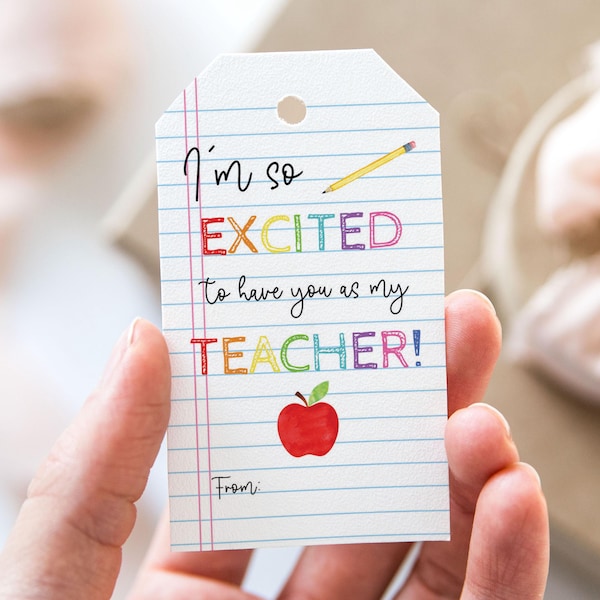 I'm so
EXCITED
to have you as my
TEACHER!
From: